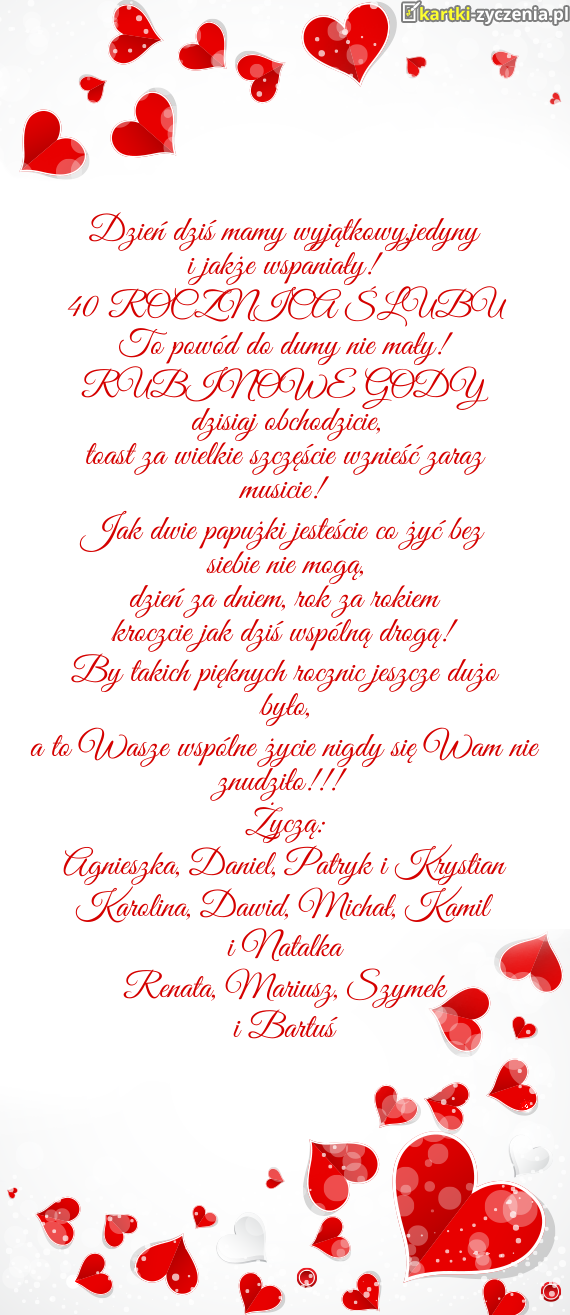 kartki-zyczenia.pl
Dzień dziś mamy wyjątkowy,jedyny
i jakże wspaniały!
40 ROCZNICA ŚLUBU
To powód do dumy nie mały!
RUBINOWE GODY
dzisiaj obchodzicie,
toast za wielkie szczęście wznieść zaraz
musicie!
Jak dwie papużki jesteście co żyć bez
siebie nie mogą,
dzień za dniem, rok za rokiem
kroczcie jak dziś wspólną drogą!
By takich pięknych rocznic jeszcze dużo
było,
a to Wasze wspólne życie nigdy się Wam nie
znudziło!!!
Życzą:
Agnieszka, Daniel, Patryk i Krystian
Karolina, Dawid, Michał, Kamil
i Natalka
Renata, Mariusz, Szymek
i Bartuś